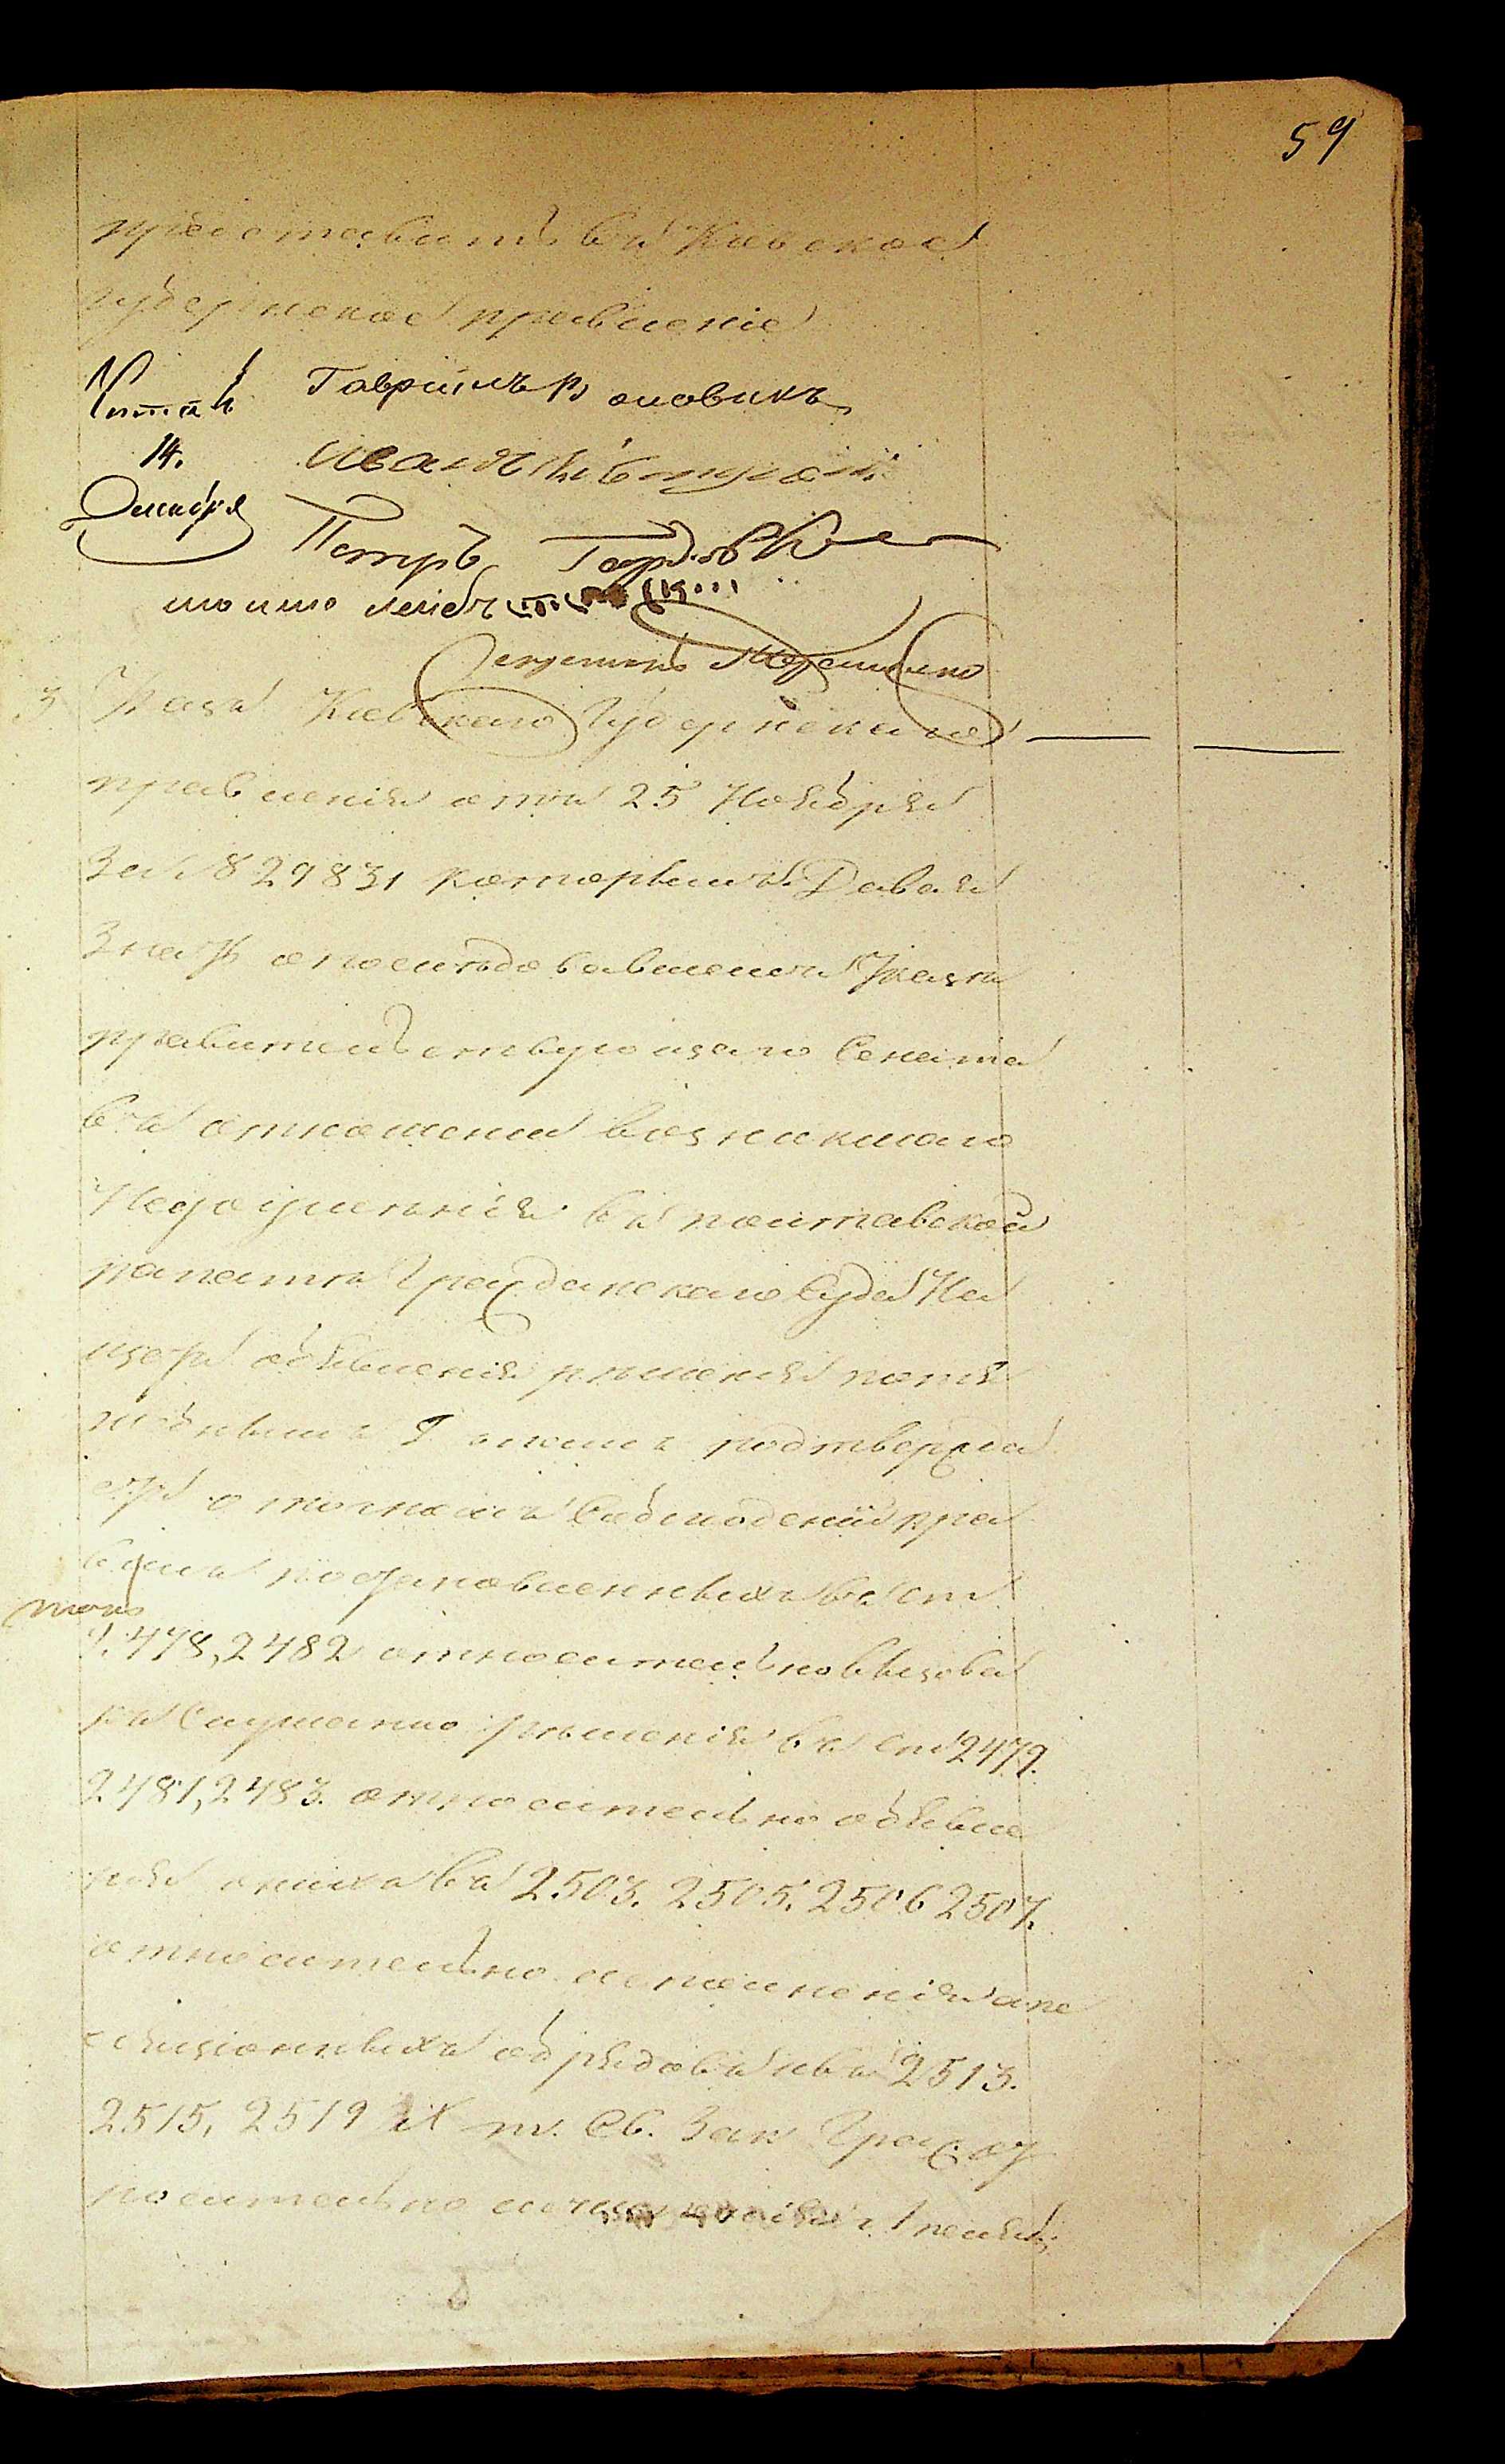 59
представить въ Кіевское
губернское правленіе
Читалъ Гавріилъ
14. Иванъ
Декабря Петръ
Секретарь
3 Указъ Кіевскаго Губернскаго
правленія отъ 25 Ноября
За № 29831 которымъ Давая
Знать опослѣдовавшемъ Указѣ
правительствующаго Сената
въ отношеніи возникшаго
Недоразуменія въ полтавской
палатѣ Гражданскаго Суда На
щетъ объявленія рѣшенія потя
подтвержда
етъ о точномъ Соблюденіи пра
вилъ постановленныхъ въ ст
2478, 2482 относительно вызова
къ Слушанію рѣшенія въ ст 2479.
2481, 2483. относительно объявле
нія онихъ въ 2503. 2505. 2506 2507.
относительно исполненія апе
ляціонныхъ обрядовъ ивъ 2513.
2515, 2519 X т. Св. Зак Граж. от
носительно